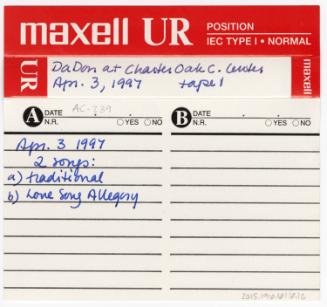 maxell UR POSITION
IEC TYPE I • NORMAL
UR
DaDon at Charter Oak C. Center
Apr. 3, 1997 tape 1
maxell
A DATE AC-339
N.R. YES NO
B DATE
N.R. YES NO
Apr. 3 1997
2 songs:
a) traditional
b) Love Song Allegory